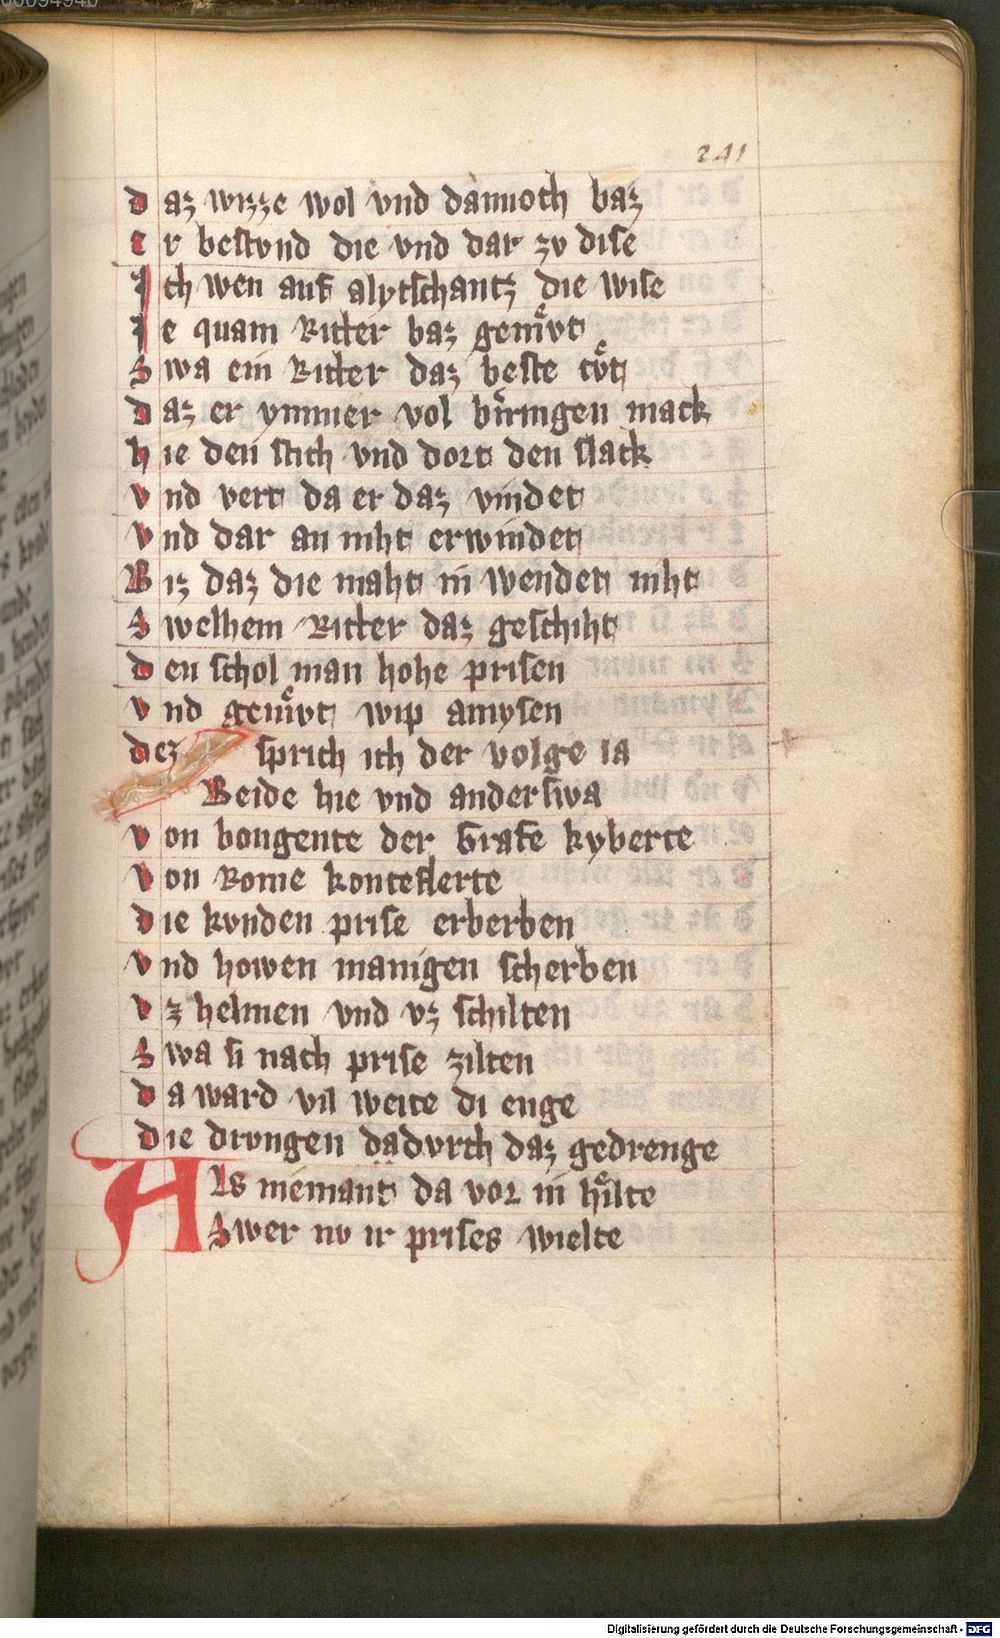 00094940
241
daz wizze wol vnd dannoch baz
er bestvnd die vnd dar zv dise
Jch wen auf alytschantz die wise
Je quam Ritter baz gemv̊t
Swa ein Ritter daz beste tv̊t
daz er ymmer vol bringen mack
hie den stich vnd dort den slack
vnd vert da er daz vindet
vnd dar an niht erwindet
Biz daz die maht in wendet niht
Swelhem Ritter daz geschiht
den schol man hohe prisen
vnd gemv̊t wip amysen
dez sprich ich der volge ia
Beide hie vnd anderswa
von bongente der Grafe kyberte
von Rome konteflerte
die kvnden prise erberben
vnd howen manigen scherben
vz helmen vnd vz schilten
Swa si nach prise zilten
da ward vil weite di enge
die drvngen dadvrch daz gedrenge
Als niemant da vor in hilte
Swer nv ir prises wielte
Digitalisierung gefördert durch die Deutsche Forschungsgemeinschaft - DFG